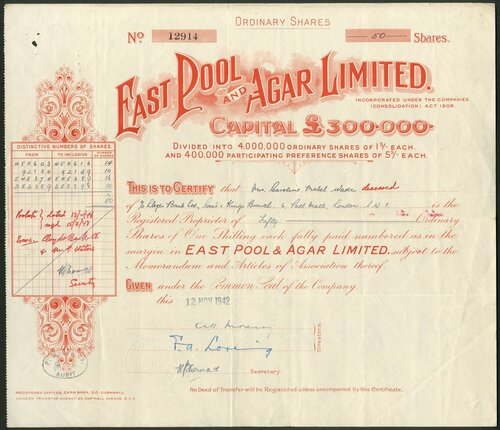 ORDINARY SHARES
No 12914
50 Shares.
EAST POOL AND AGAR LIMITED.
INCORPORATED UNDER THE COMPANIES
(CONSOLIDATION) ACT 1908.
CAPITAL £300·000·
DIVIDED INTO 4,000,000 ORDINARY SHARES OF 1/- EACH.
AND 400,000 PARTICIPATING PREFERENCE SHARES OF 5/- EACH.
DISTINCTIVE NUMBERS OF SHARES
NUMBER OF SHARES
FROM
TO INCLUSIVE
14
10
16
10
50
THIS IS TO CERTIFY that Mrs. Caroline Mabel deceased
of Lloyds Bank Ltd, Cox's & King's Branch, 6, Pall Mall, London, S.W.1 is the
Registered Proprietor of Fifty Ordinary
Shares of One Shilling each fully paid numbered as in the
margin in EAST POOL & AGAR LIMITED. subject to the
Memorandum and Articles of Association thereof.
GIVEN under the Common Seal of the Company
this 12 NOV 1942
Directors.
Secretary.
No Deed of Transfer will be Registered unless accompanied by this Certificate.
AUDIT
REGISTERED OFFICES, CARN BREA, S.O. CORNWALL.
LONDON TRANSFER AGENCY, 20, COPTHALL AVENUE, E.C.2.